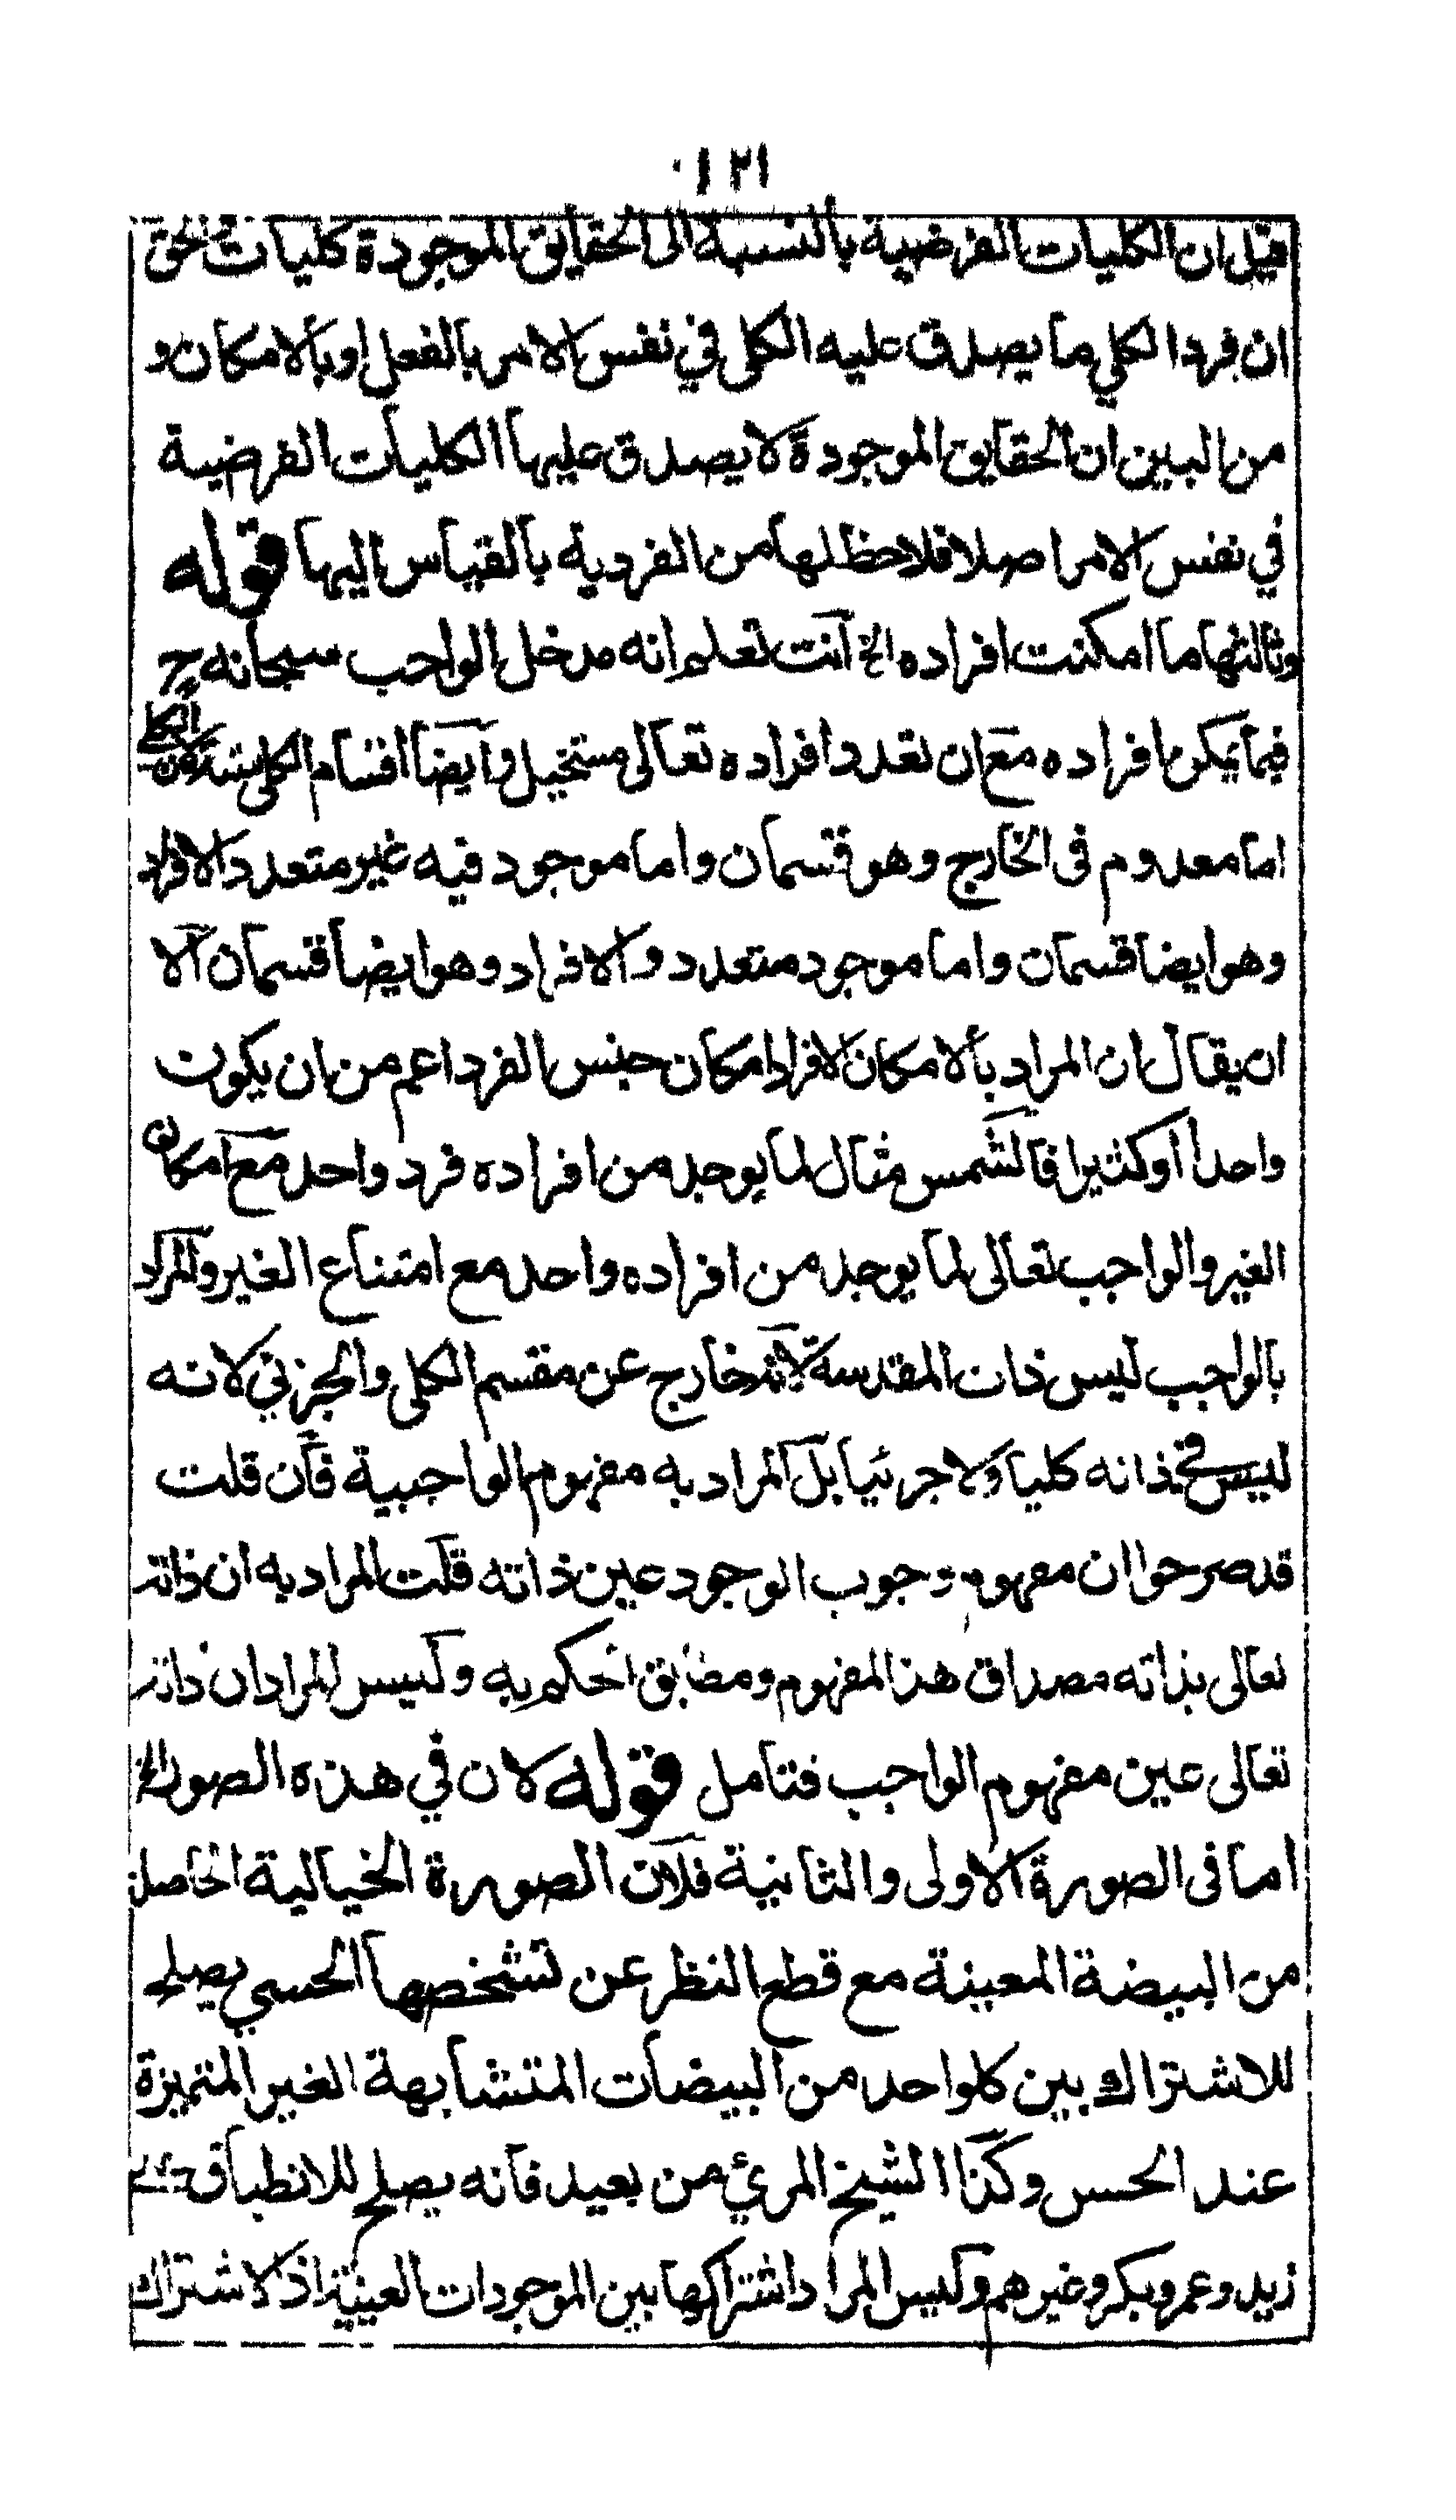 ١٢١
قيل ان الكليات الفرضية بالنسبة الى الحقايق الموجودة كليات والحق
ان فرد الكلي ما يصدق عليه الكلى في نفس الامر بالفعل او بالامكان و
من البين ان الحقايق الموجودة لا يصدق عليها الكليات الفرضية
في نفس الامر اصلا فلا حظ لها من الفردية بالقياس اليها قوله
وثالثها ما امكنت افراده الخ انت تعلم انه مدخل الواجب سبحانه ح
فيما يمكن افراده مع ان تعدد افراده تعالى مستحيل وايضا اقسام الكلى ستة لان الكلي
اما معدوم فى الخارج وهو قسمان واما موجود فيه غير متعدد الافراد
وهو ايضا قسمان واما موجود متعدد والافراد وهو ايضا قسمان الا
ان يقال ان المراد بالامكان الافراد امكان جنس الفرد اعم من ان يكون
واحدا او كثيرا فالشمس مثال لما يوجد من افراده فرد واحد مع امكان
الغير والواجب تعالى لما يوجد من افراده واحد مع امتناع الغير والمراد
بالواجب ليس ذات المقدسة لانه خارج عن مقسم الكلى والجزئي لانه
ليس في ذاته كليا ولا جزئيا بل المراد به مفهوم الواجبية فان قلت
قد صرحوا ان مفهوم وجوب الوجود عين ذاته قلت المراد به ان ذاته
تعالى بذاته مصداق هذا المفهوم ومطابق الحكم به وليس المراد ان ذاته
تعالى عين مفهوم الواجب فتامل قوله لان في هذه الصور الخ
اما فى الصورة الاولى والثانية فلان الصورة الخيالية الحاصلة
من البيضة المعينة مع قطع النظر عن تشخصها الحسي يصلح
للاشتراك بين كلواحد من البيضات المتشابهة الغير المتميزة
عند الحس وكذا الشيخ المرئي من بعيد فانه يصلح للانطباق على
زيد وعمرو بكر وغيرهم وليس المراد اشتراكها بين الموجودات العينية اذ الاشتراك